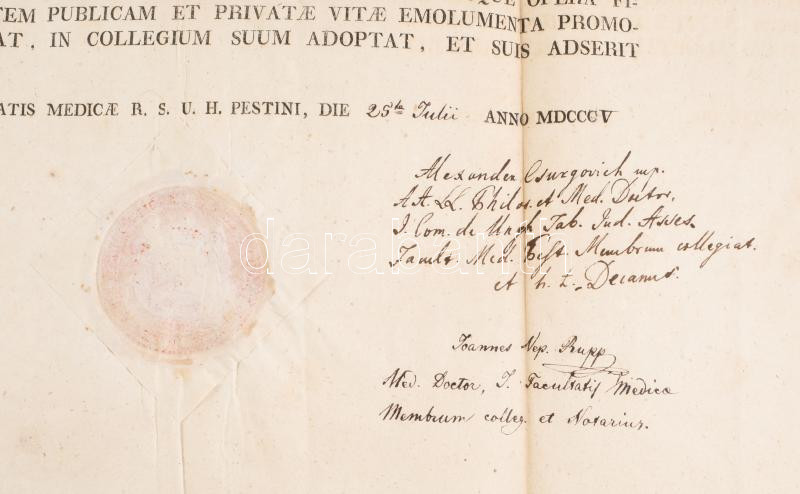 QUE OPERA FI-
TEM PUBLICAM ET PRIVATÆ VITÆ EMOLUMENTA PROMO-
AT, IN COLLEGIUM SUUM ADOPTAT, ET SUIS ADSERIT
ATIS MEDICÆ R. S. U. H. PESTINI, DIE 25ta Julii ANNO MDCCCV
Alexander Csurgovich mp.
AA. LL. Philos. et Med. Doctor,
I. Com. de Ungh Tab. Jud. Asses.
Facult. Med. Pest. Membrum collegiat.
et h. t. Decanus.
Joannes Nep. Rupp
Med. Doctor, I. Facultatis Medicæ
Membrum colleg. et Notarius.
darabanth